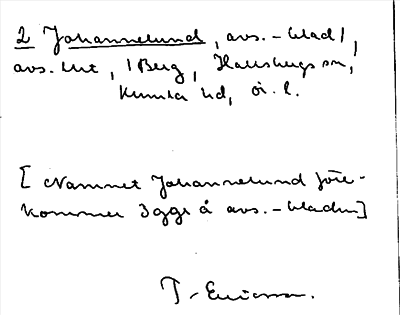 2 Johannelund, avs.-blad 1,
avs. utt, 1 Berg, Hallsbergs sn,
Kumla hd, ör. l.
[Namnet Johannelund före-
kommer 3 ggr å avs.-bladen]
T. Ericsson.